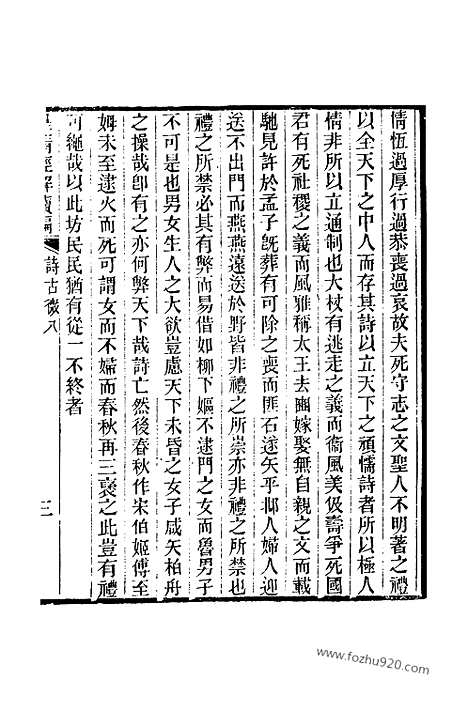 情恆過厚行過恭喪過哀故夫死守志之文聖人不明著之禮
以全天下之中人而存其詩以立天下之頑懦詩者所以極人
情非所以立通制也大杖有逃走之義而衞風美伋壽爭死國
君有死社稷之義而風雅稱太王去豳嫁娶無自親之文而載
馳見許於孟子旣葬有可除之喪而匪石遂矢乎鄁人婦人迎
送不出門而燕燕遠送於野皆非禮之所崇亦非禮之所禁也
禮之所禁必其有弊而易借如柳下嫗不逮門之女而魯男子
不可是也男女生人之大欲豈慮天下未昏之女子咸矢柏舟
之操哉卽有之亦何弊天下哉詩亡然後春秋作宋伯姬傅至
姆未至逮火而死可謂女而不婦而春秋再三褒之此豈有禮
可繩哉以此坊民民猶有從一不終者
皇淸經解續編
詩古微八
三
www.fozhu920.com